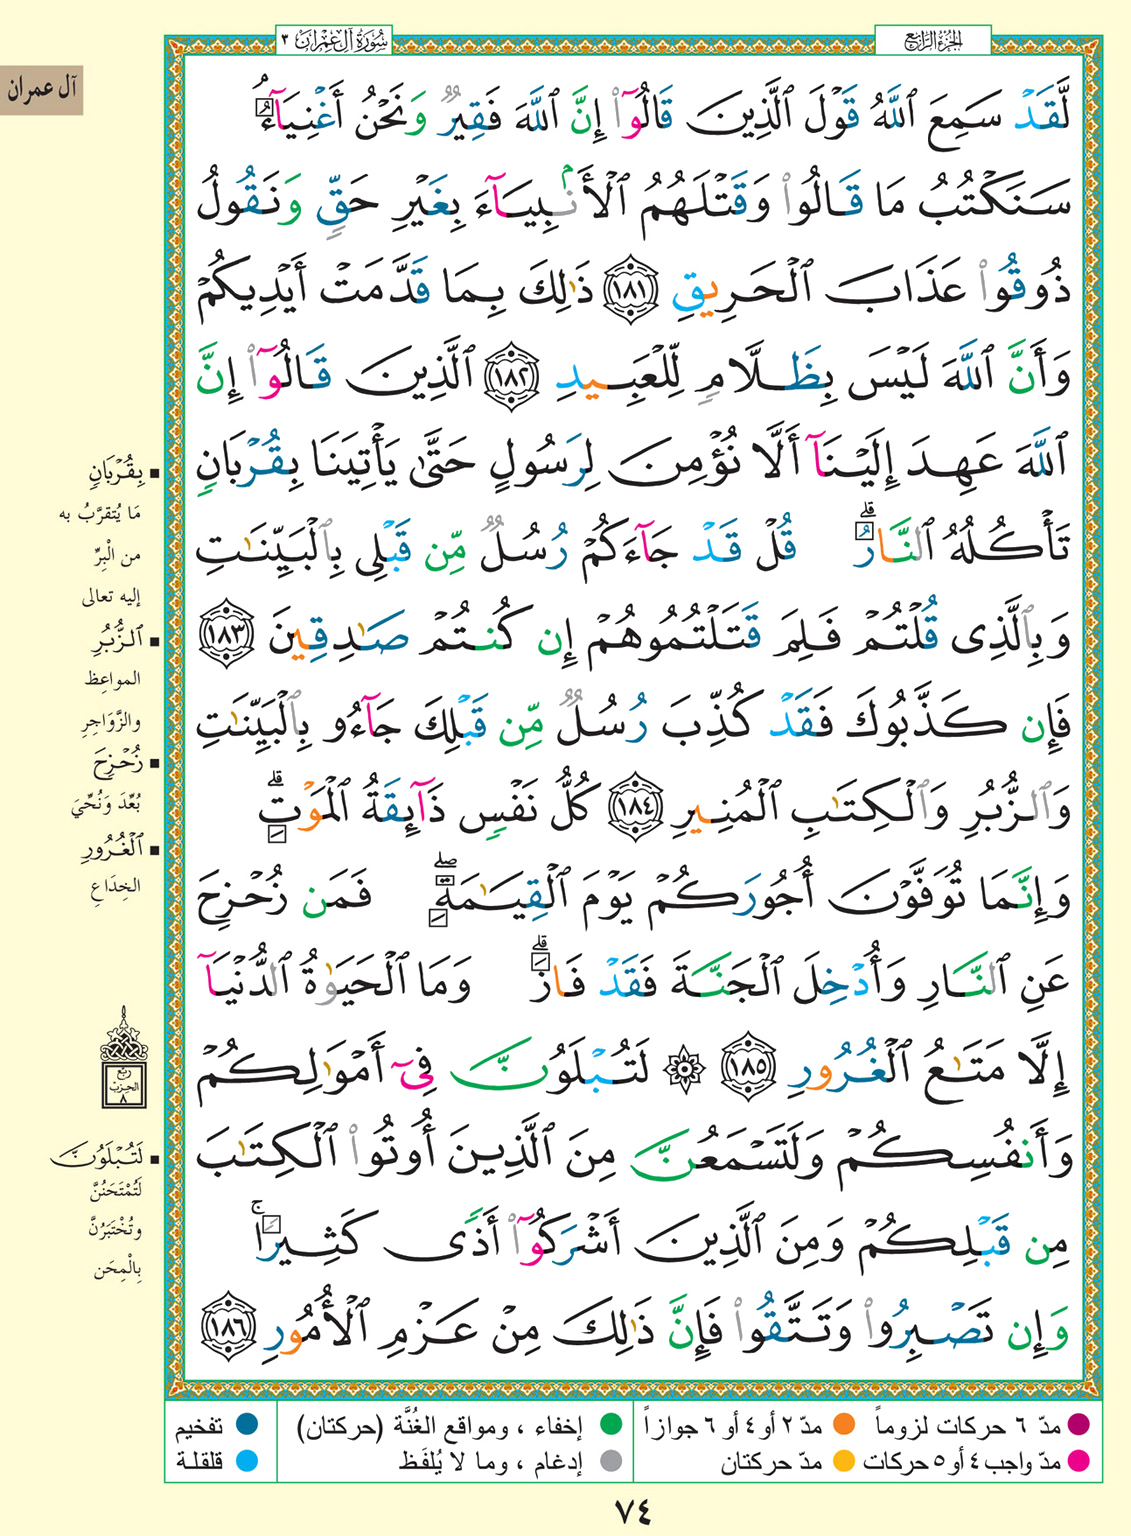 سُورَةُ آلِ عِمْرَانَ ٣
الجُزْءُ الرَّابِعُ
آل عمران
لَّقَدْ سَمِعَ ٱللَّهُ قَوْلَ ٱلَّذِينَ قَالُوٓا۟ إِنَّ ٱللَّهَ فَقِيرٌ وَنَحْنُ أَغْنِيَآءُ
سَنَكْتُبُ مَا قَالُوا۟ وَقَتْلَهُمُ ٱلْأَنۢبِيَآءَ بِغَيْرِ حَقٍّ وَنَقُولُ
ذُوقُوا۟ عَذَابَ ٱلْحَرِيقِ ١٨١ ذَٰلِكَ بِمَا قَدَّمَتْ أَيْدِيكُمْ
وَأَنَّ ٱللَّهَ لَيْسَ بِظَلَّامٍ لِّلْعَبِيدِ ١٨٢ ٱلَّذِينَ قَالُوٓا۟ إِنَّ
ٱللَّهَ عَهِدَ إِلَيْنَآ أَلَّا نُؤْمِنَ لِرَسُولٍ حَتَّىٰ يَأْتِيَنَا بِقُرْبَانٍ
تَأْكُلُهُ ٱلنَّارُ ۗ قُلْ قَدْ جَآءَكُمْ رُسُلٌ مِّن قَبْلِى بِٱلْبَيِّنَٰتِ
وَبِٱلَّذِى قُلْتُمْ فَلِمَ قَتَلْتُمُوهُمْ إِن كُنتُمْ صَٰدِقِينَ ١٨٣
فَإِن كَذَّبُوكَ فَقَدْ كُذِّبَ رُسُلٌ مِّن قَبْلِكَ جَآءُو بِٱلْبَيِّنَٰتِ
وَٱلزُّبُرِ وَٱلْكِتَٰبِ ٱلْمُنِيرِ ١٨٤ كُلُّ نَفْسٍ ذَآئِقَةُ ٱلْمَوْتِ ۗ
وَإِنَّمَا تُوَفَّوْنَ أُجُورَكُمْ يَوْمَ ٱلْقِيَٰمَةِ ۖ فَمَن زُحْزِحَ
عَنِ ٱلنَّارِ وَأُدْخِلَ ٱلْجَنَّةَ فَقَدْ فَازَ ۗ وَمَا ٱلْحَيَوٰةُ ٱلدُّنْيَآ
إِلَّا مَتَٰعُ ٱلْغُرُورِ ١٨٥ ۞ لَتُبْلَوُنَّ فِىٓ أَمْوَٰلِكُمْ
وَأَنفُسِكُمْ وَلَتَسْمَعُنَّ مِنَ ٱلَّذِينَ أُوتُوا۟ ٱلْكِتَٰبَ
مِن قَبْلِكُمْ وَمِنَ ٱلَّذِينَ أَشْرَكُوٓا۟ أَذًى كَثِيرًا ۚ
وَإِن تَصْبِرُوا۟ وَتَتَّقُوا۟ فَإِنَّ ذَٰلِكَ مِنْ عَزْمِ ٱلْأُمُورِ ١٨٦
▪ بِقُرْبَانٍ
مَا يُتقرَّبُ به
من الْبِرِّ
إليه تعالى
▪ ٱلزُّبُرِ
المواعِظ
والزَّوَاجِرِ
▪ زُحْزِحَ
بُعِّدَ وَنُحِّيَ
▪ ٱلْغُرُورِ
الخِدَاعِ
ربع
الحزب
٨
▪ لَتُبْلَوُنَّ
لَتُمْتَحَنُنَّ
وتُخْتَبَرُنَّ
بِالْمِحَن
مدّ ٦ حركات لزوماً ● مدّ ٢ أو ٤ أو ٦ جوازاً ● إخفاء ، ومواقع الغُنَّة (حركتان) ● تفخيم
مدّ واجب ٤ أو ٥ حركات ● مدّ حركتان ● إدغام ، وما لا يُلفَظ ● قلقلة
٧٤